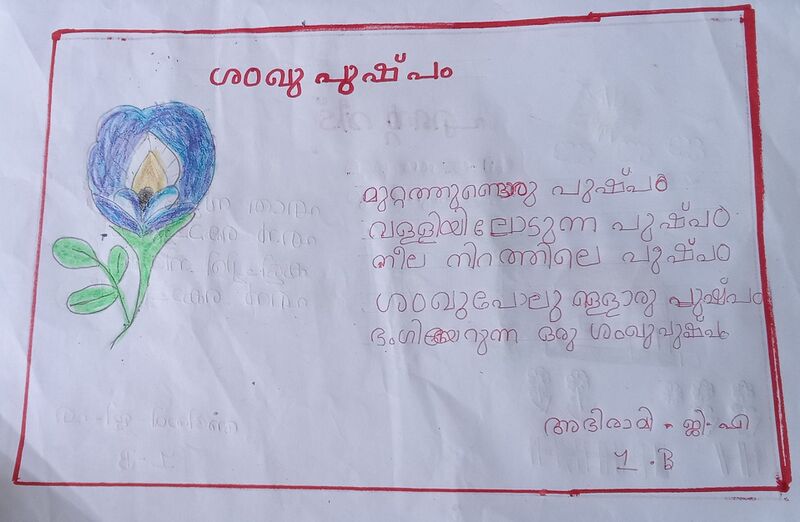 ശംഖു പുഷ്പം
മുറ്റത്തുണ്ടൊരു പുഷ്പം
വള്ളിയിലോടുന്ന പുഷ്പം
നീല നിറത്തിലെ പുഷ്പം
ശംഖുപോലു ള്ളൊരു പുഷ്പം
ഭംഗിയേറുന്ന ഒരു ശംഖുപുഷ്പം
അഭിരാമി . ജി. പി
1 . B